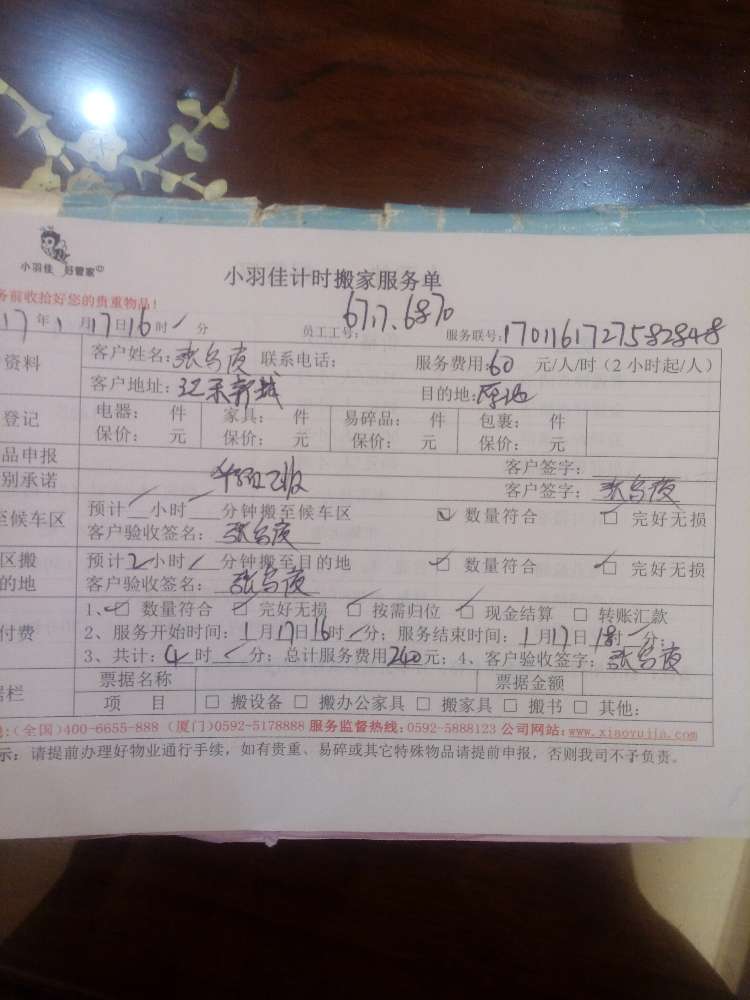 小羽佳 好管家
小羽佳计时搬家服务单
务前收拾好您的贵重物品!
17年1月17日16时 分 员工工号: 6717.6870 服务联号:1701161727582848
资料 客户姓名: 联系电话: 服务费用:60 元/人/时(2小时起/人)
客户地址: 目的地:原地
登记 电器: 件 家具: 件 易碎品: 件 包裹: 件
保价: 元 保价: 元 保价: 元 保价: 元
品申报 客户签字:
别承诺 客户签字:
至候车区 预计 小时 分钟搬至候车区 ☑ 数量符合 □ 完好无损
客户验收签名:
区搬 预计2小时 分钟搬至目的地 ☑ 数量符合 ☑ 完好无损
的地 客户验收签名:
付费 1、☑ 数量符合 ☑ 完好无损 ☑ 按需归位 ☑ 现金结算 □ 转账汇款
2、服务开始时间:1月17日16时 分;服务结束时间:1月17日18时 分;
3、共计:4时 分;总计服务费用240元;4、客户验收签字:
据栏 票据名称 票据金额
项 目 □ 搬设备 □ 搬办公家具 □ 搬家具 □ 搬书 □ 其他:
:(全国)400-6655-888 (厦门)0592-5178888 服务监督热线:0592-5888123 公司网站:www.xiaoyujia.com
示:请提前办理好物业通行手续,如有贵重、易碎或其它特殊物品请提前申报,否则我司不予负责。